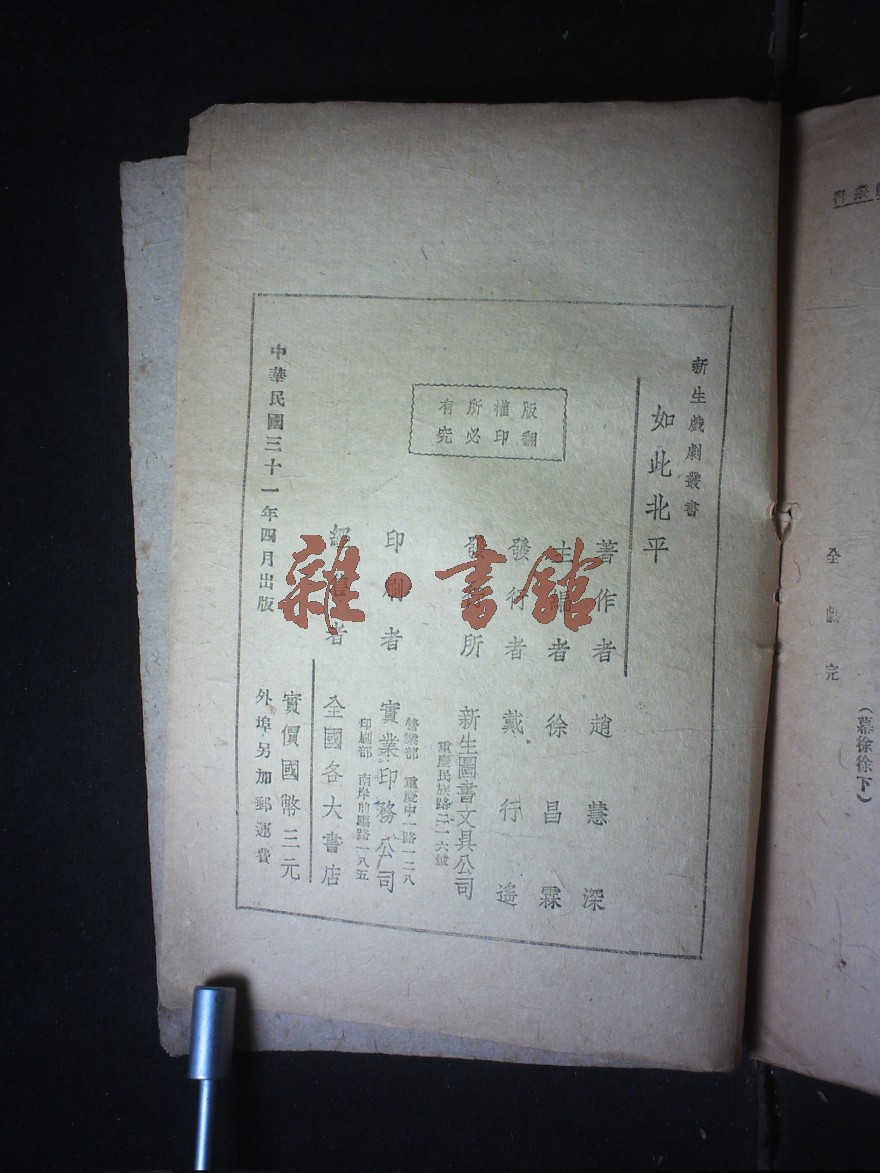 全劇完
（幕徐徐下）
新生戲劇叢書
如此北平
著作者 趙慧深
主編者 徐昌霖
發行者 戴行遙
發行所 新生圖書文具公司
重慶民族路二一六號
版權所有
翻印必究
印刷者 實業印務公司
營業部 重慶中一路一二八
印刷部 南岸前驅路一八五
經售者 全國各大書店
實價國幣三元
外埠另加郵運費
中華民國三十一年四月出版
雜·書館